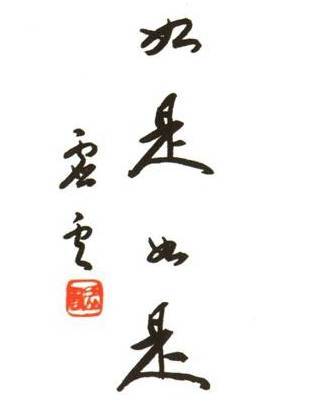 如是如是
虛雲